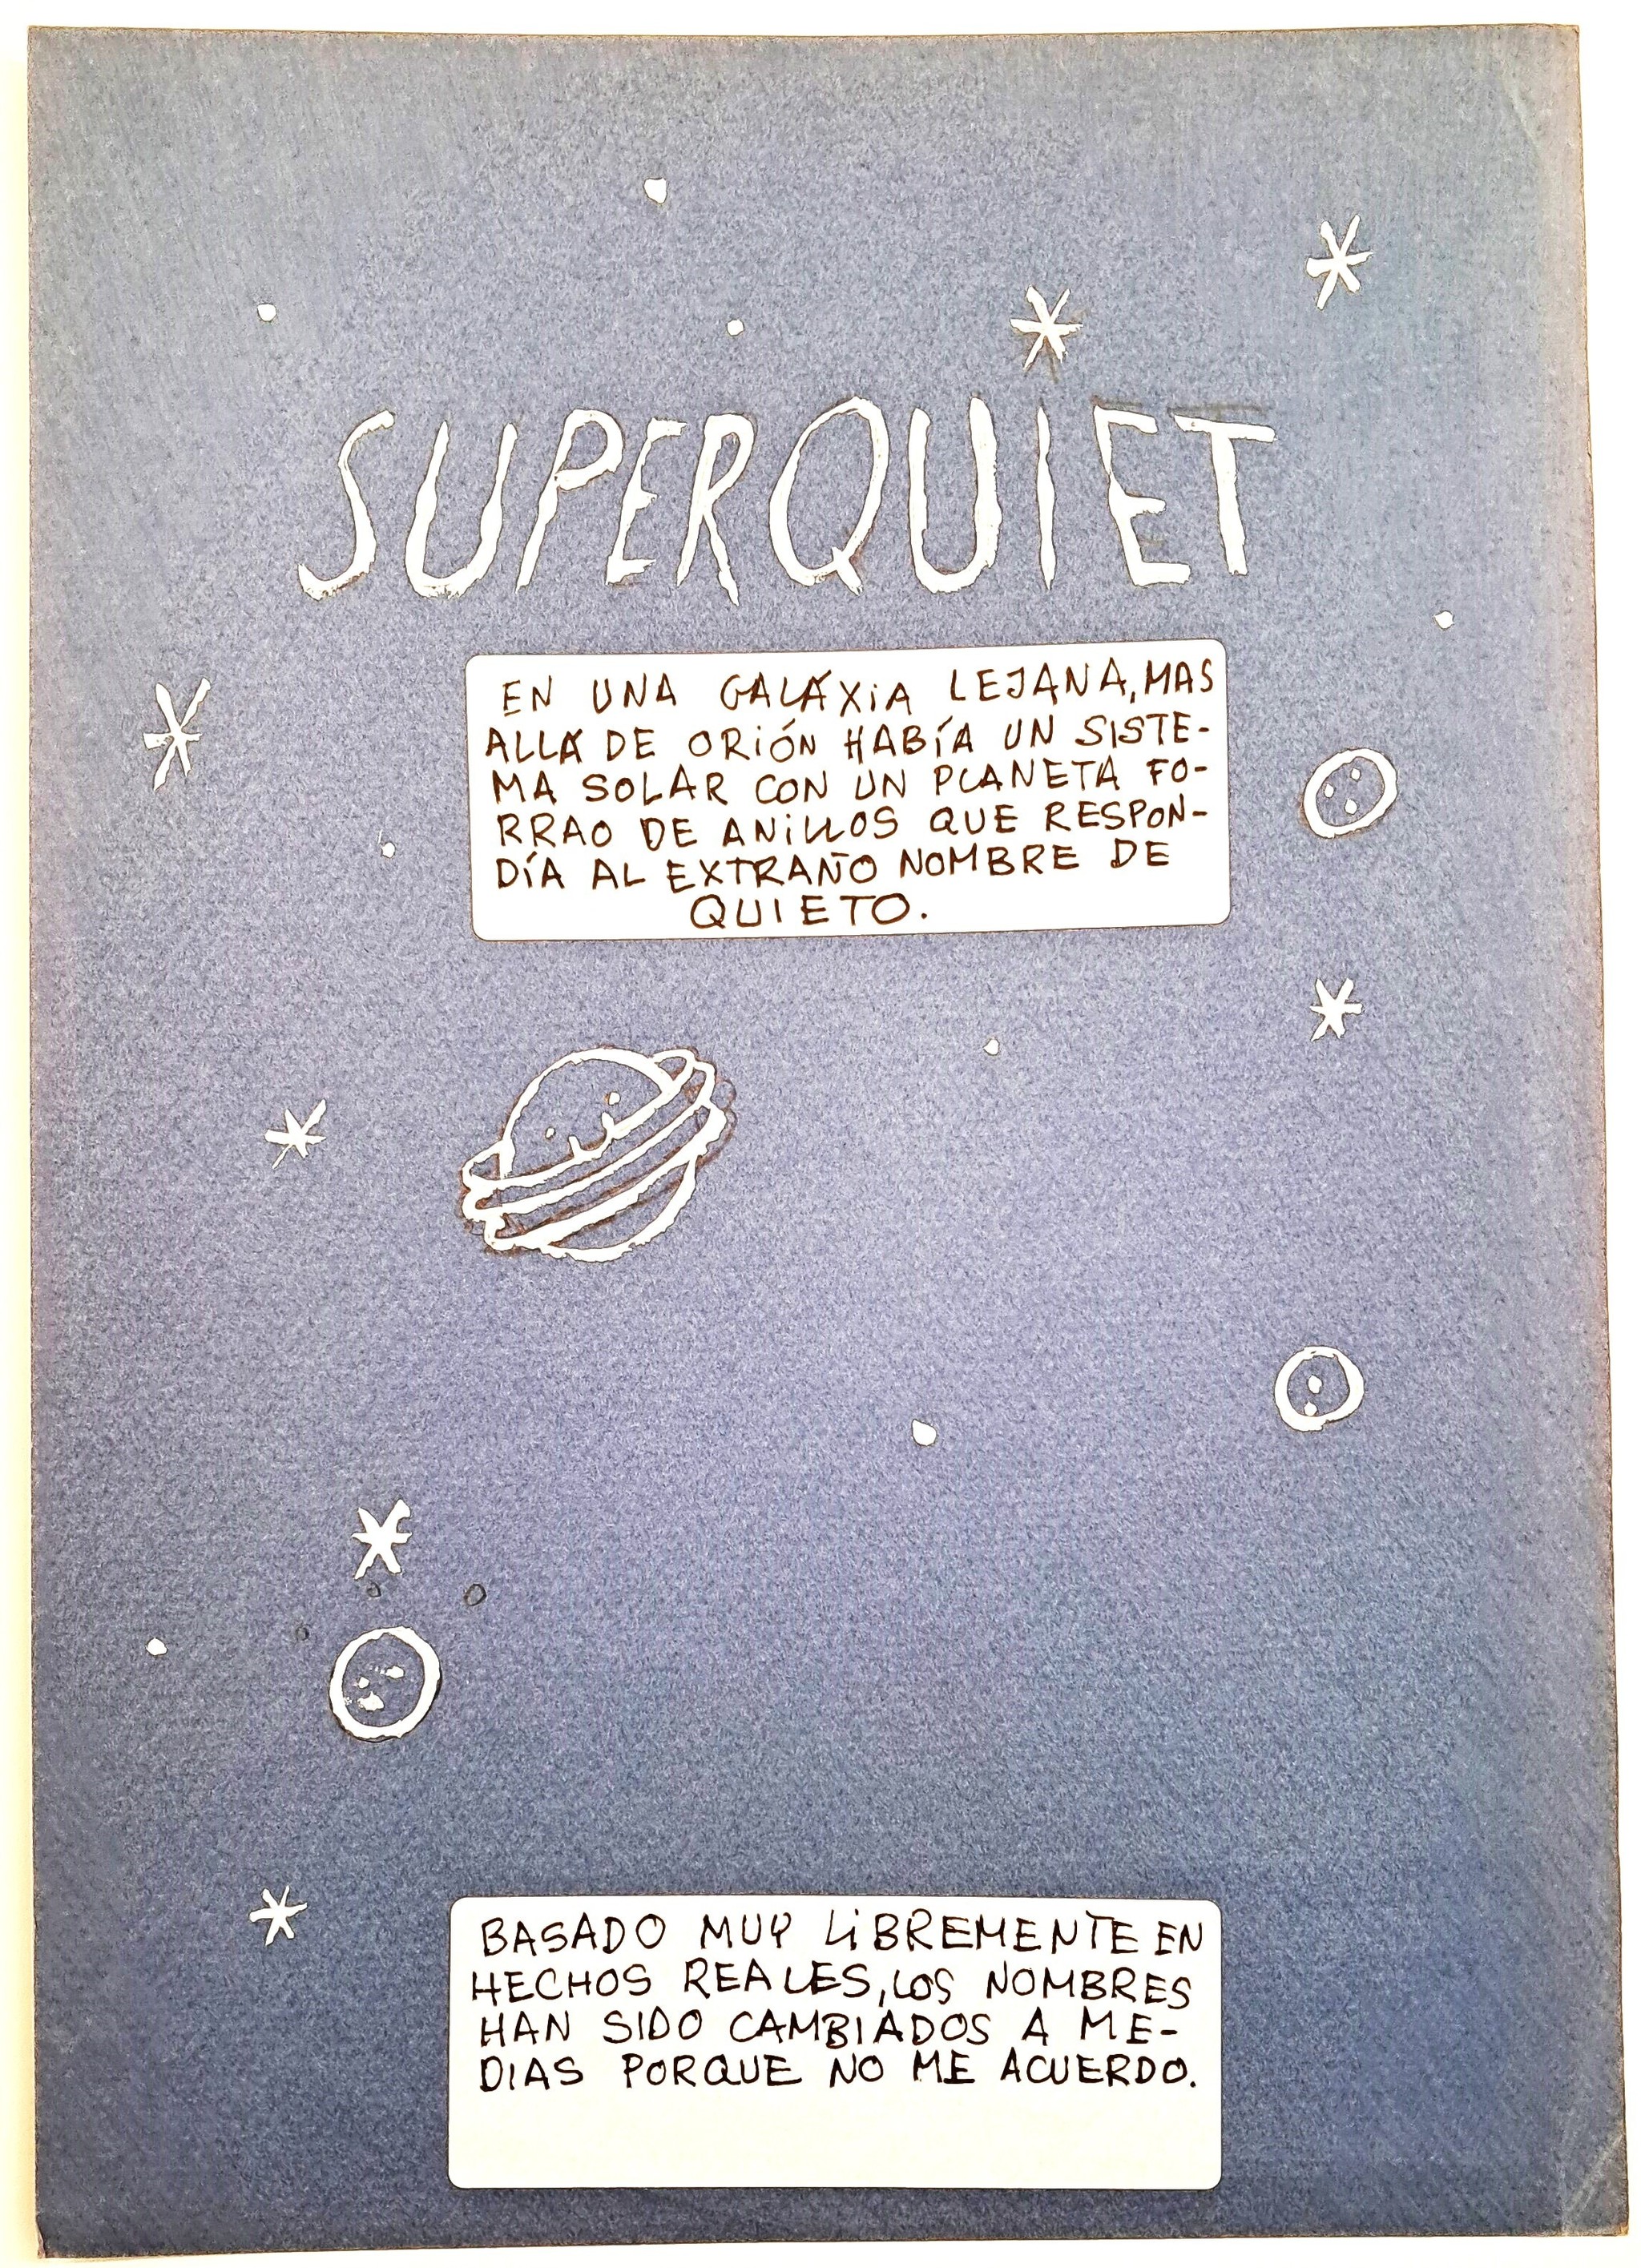 SUPERQUIET
EN UNA GALÁXIA LEJANA, MAS
ALLÁ DE ORIÓN HABÍA UN SISTE-
MA SOLAR CON UN PLANETA FO-
RRAO DE ANILLOS QUE RESPON-
DÍA AL EXTRAÑO NOMBRE DE
QUIETO.
BASADO MUY LIBREMENTE EN
HECHOS REALES, LOS NOMBRES
HAN SIDO CAMBIADOS A ME-
DIAS PORQUE NO ME ACUERDO.